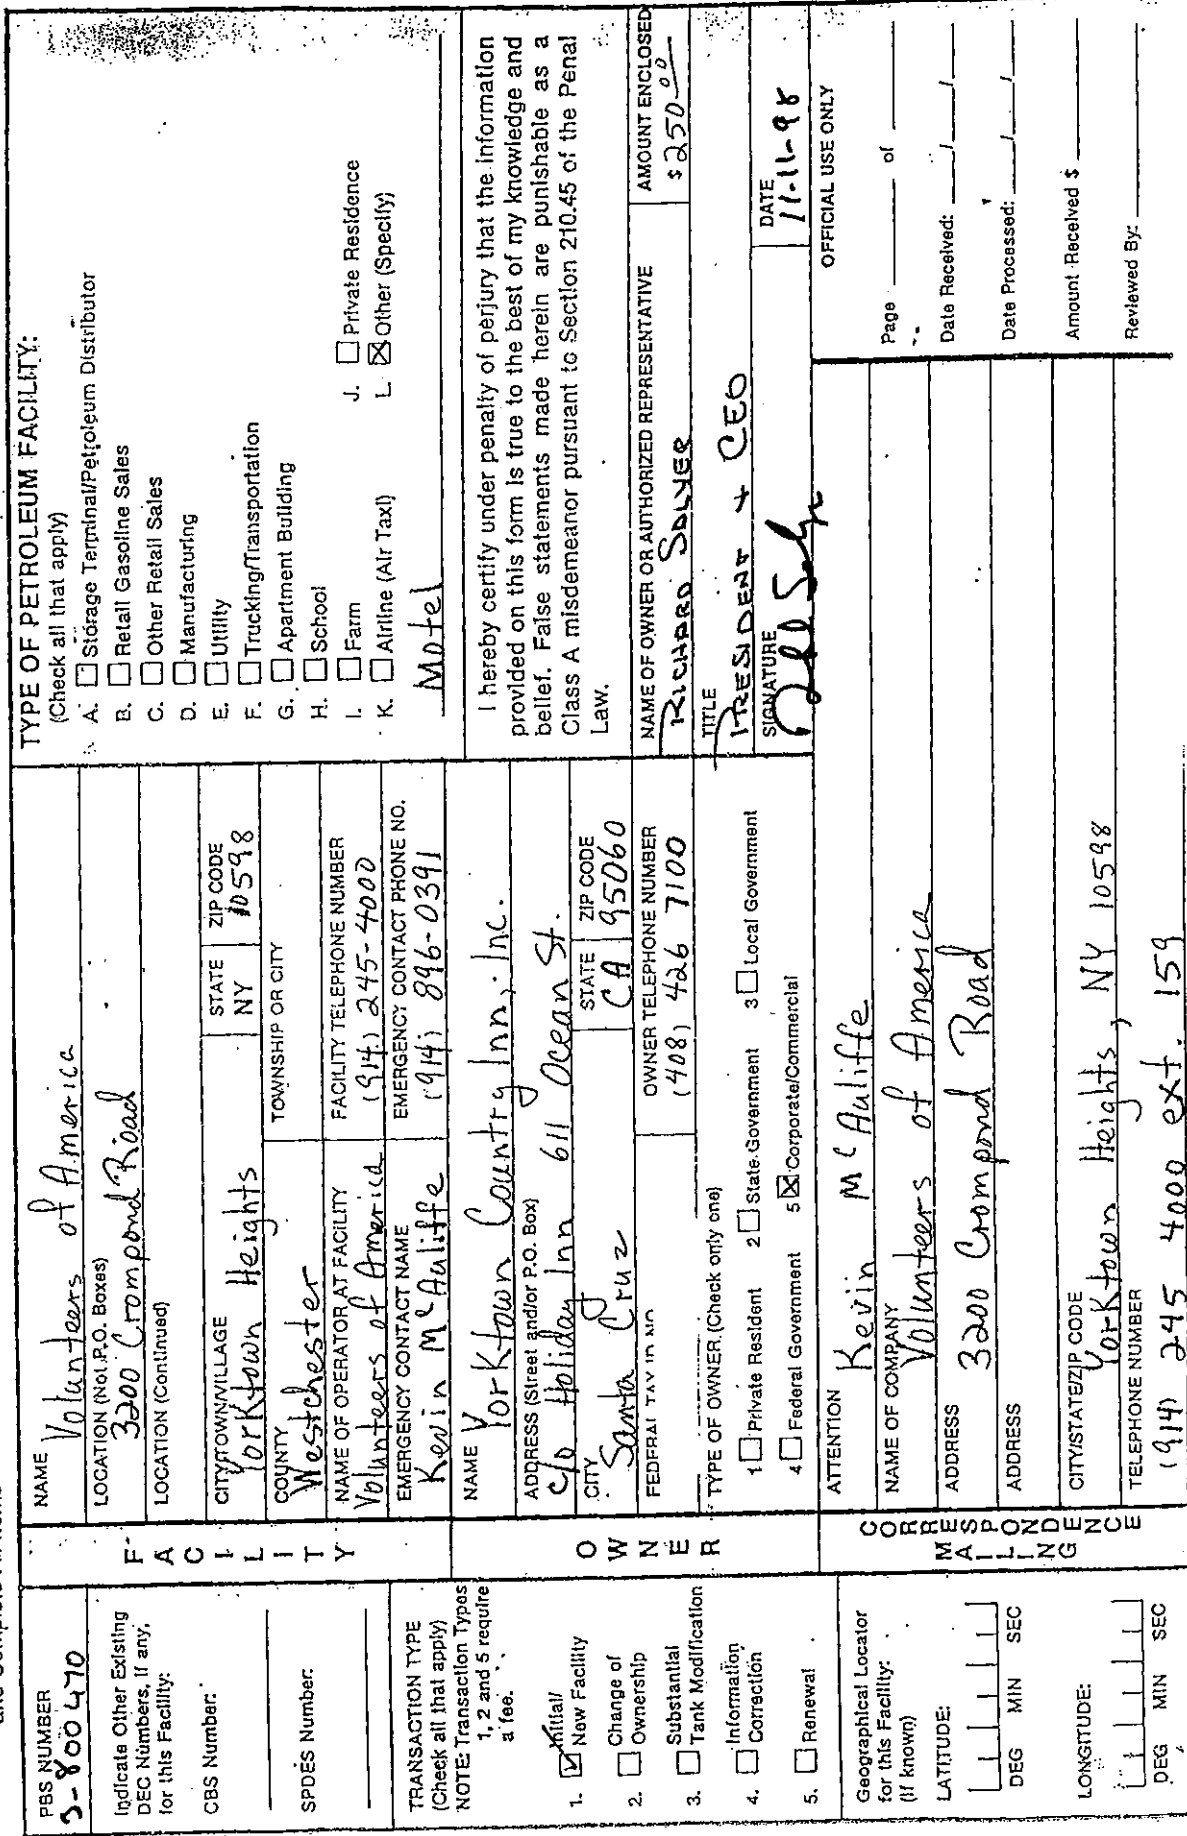 PBS NUMBER
3-800470
Indicate Other Existing
DEC Numbers, If any,
for this Facility:
CBS Number:
SPDES Number:
TRANSACTION TYPE
(Check all that apply)
NOTE: Transaction Types
1, 2 and 5 require
a fee.
1. ☑ Initial/
New Facility
2. ☐ Change of
Ownership
3. ☐ Substantial
Tank Modification
4. ☐ Information
Correction
5. ☐ Renewal
Geographical Locator
for this Facility:
(If known)
LATITUDE:
DEG MIN SEC
LONGITUDE:
DEG MIN SEC
FACILITY
NAME
Volunteers of America
LOCATION (Not P.O. Boxes)
3200 Crompond Road
LOCATION (Continued)
CITY/TOWN/VILLAGE
Yorktown Heights
STATE
NY
ZIP CODE
10598
COUNTY
Westchester
TOWNSHIP OR CITY
NAME OF OPERATOR AT FACILITY
Volunteers of America
FACILITY TELEPHONE NUMBER
(914) 245-4000
EMERGENCY CONTACT NAME
Kevin McAuliffe
EMERGENCY CONTACT PHONE NO.
(914) 896-0391
OWNER
NAME
Yorktown Country Inn, Inc.
ADDRESS (Street and/or P.O. Box)
c/o Holiday Inn 611 Ocean St.
CITY
Santa Cruz
STATE
CA
ZIP CODE
95060
FEDERAL TAX ID NO
OWNER TELEPHONE NUMBER
(408) 426 7100
TYPE OF OWNER (Check only one)
1 ☐ Private Resident 2 ☐ State Government 3 ☐ Local Government
4 ☐ Federal Government 5 ☒ Corporate/Commercial
MAILING CORRESPONDENCE
ATTENTION
Kevin McAuliffe
NAME OF COMPANY
Volunteers of America
ADDRESS
3200 Crompond Road
ADDRESS
CITY/STATE/ZIP CODE
Yorktown Heights, NY 10598
TELEPHONE NUMBER
(914) 245 4000 ext. 159
TYPE OF PETROLEUM FACILITY:
(Check all that apply)
A. ☐ Storage Terminal/Petroleum Distributor
B. ☐ Retail Gasoline Sales
C. ☐ Other Retail Sales
D. ☐ Manufacturing
E. ☐ Utility
F. ☐ Trucking/Transportation
G. ☐ Apartment Building
H. ☐ School
I. ☐ Farm J. ☐ Private Residence
K. ☐ Airline (Air Taxi) L. ☒ Other (Specify)
Motel
I hereby certify under penalty of perjury that the information
provided on this form is true to the best of my knowledge and
belief. False statements made herein are punishable as a
Class A misdemeanor pursuant to Section 210.45 of the Penal
Law.
NAME OF OWNER OR AUTHORIZED REPRESENTATIVE
RICHARD SOLYER
AMOUNT ENCLOSED
$250.00
TITLE
PRESIDENT + CEO
SIGNATURE
DATE
11-11-98
OFFICIAL USE ONLY
Page ____ of ____
Date Received: __/__/__
Date Processed: __/__/__
Amount Received $ ____
Reviewed By: ____